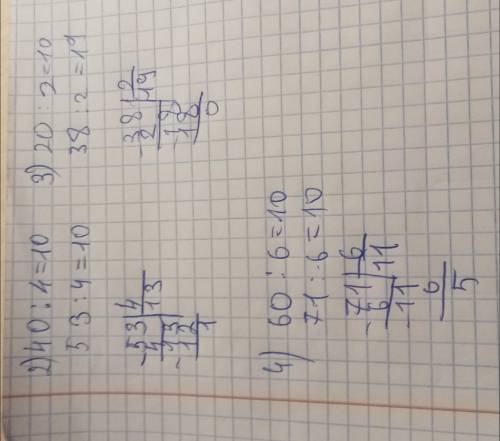 2) 40 : 4 = 10
53 : 4 = 10
-53 | 4
4 | 13
13
-12
1
3) 20 : 2 = 10
38 : 2 = 19
-38 | 2
2 | 19
18
-18
0
4) 60 : 6 = 10
71 : 6 = 10
-71 | 6
6 | 11
-11
6
5